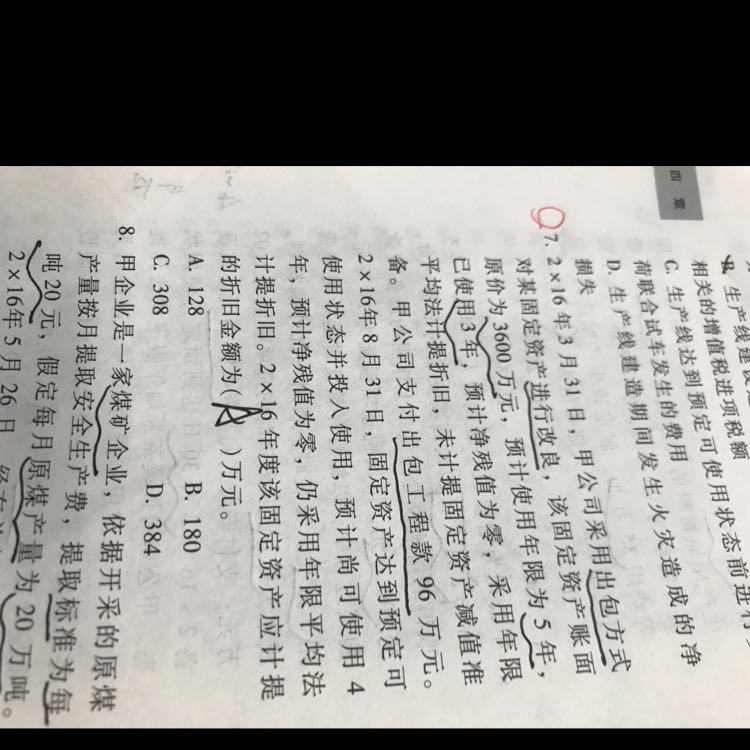 四 章
B. 生产线建设
相关的增值税进项税额
C. 生产线达到预定可使用状态前进行
荷联合试车发生的费用
D. 生产线建造期间发生火灾造成的净
损失
7. 2×16年3月31日，甲公司采用出包方式
对某固定资产进行改良，该固定资产账面
原价为3600万元，预计使用年限为5年，
已使用3年，预计净残值为零，采用年限
平均法计提折旧，未计提固定资产减值准
备。甲公司支付出包工程款96万元。
2×16年8月31日，固定资产达到预定可
使用状态并投入使用，预计尚可使用4
年，预计净残值为零，仍采用年限平均法
计提折旧。2×16年度该固定资产应计提
的折旧金额为(A)万元。
A. 128 B. 180
C. 308 D. 384
8. 甲企业是一家煤矿企业，依据开采的原煤
产量按月提取安全生产费，提取标准为每
吨20元，假定每月原煤产量为20万吨。
2×16年5月26日